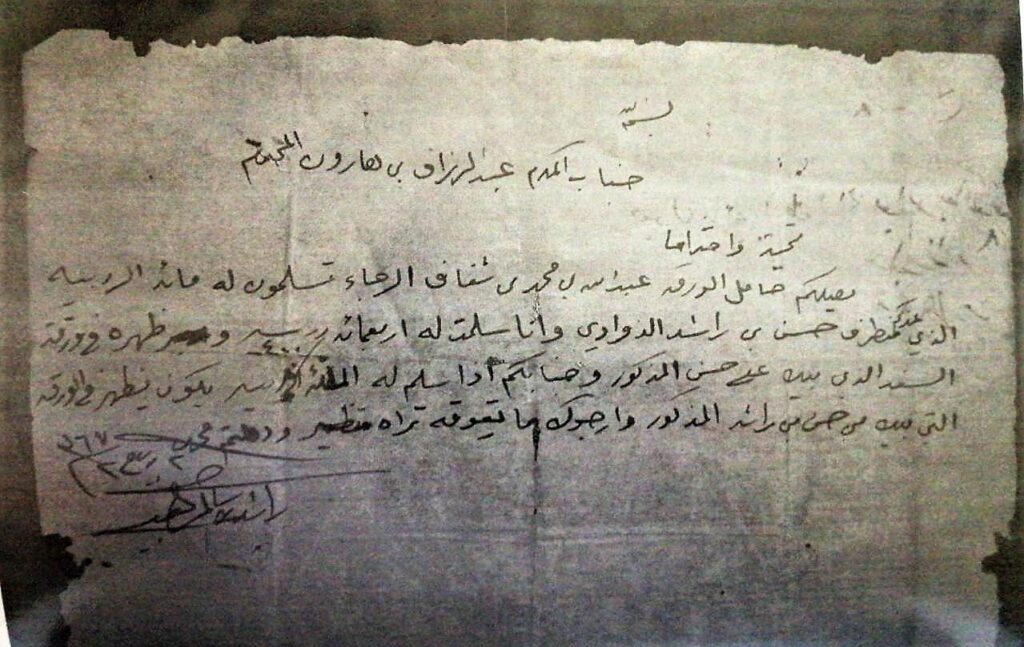 بسمه
جناب المكرم عبدالرزاق بن هارون المحترم
تحية واحتراما
يصلكم حامل الورقه عبدالله بن محمد بن شفاف الرجاء تسلمون له مائة الربيه
الذي عندكم طرف حسن بن راشد الذوادي وانا سلمت له اربعمائة ربيه و ظهره في ورقة
السند الذي بيده على حسن المذكور وجنابكم اذا سلم له المائة ربيه يكون يظهر في الورقه
التي بيده من حسن بن راشد المذكور وارجوك ما تعوقه تراه منتظر ودمتم محترمين
٢ ربيع ٢ ٣٦٧
راشد